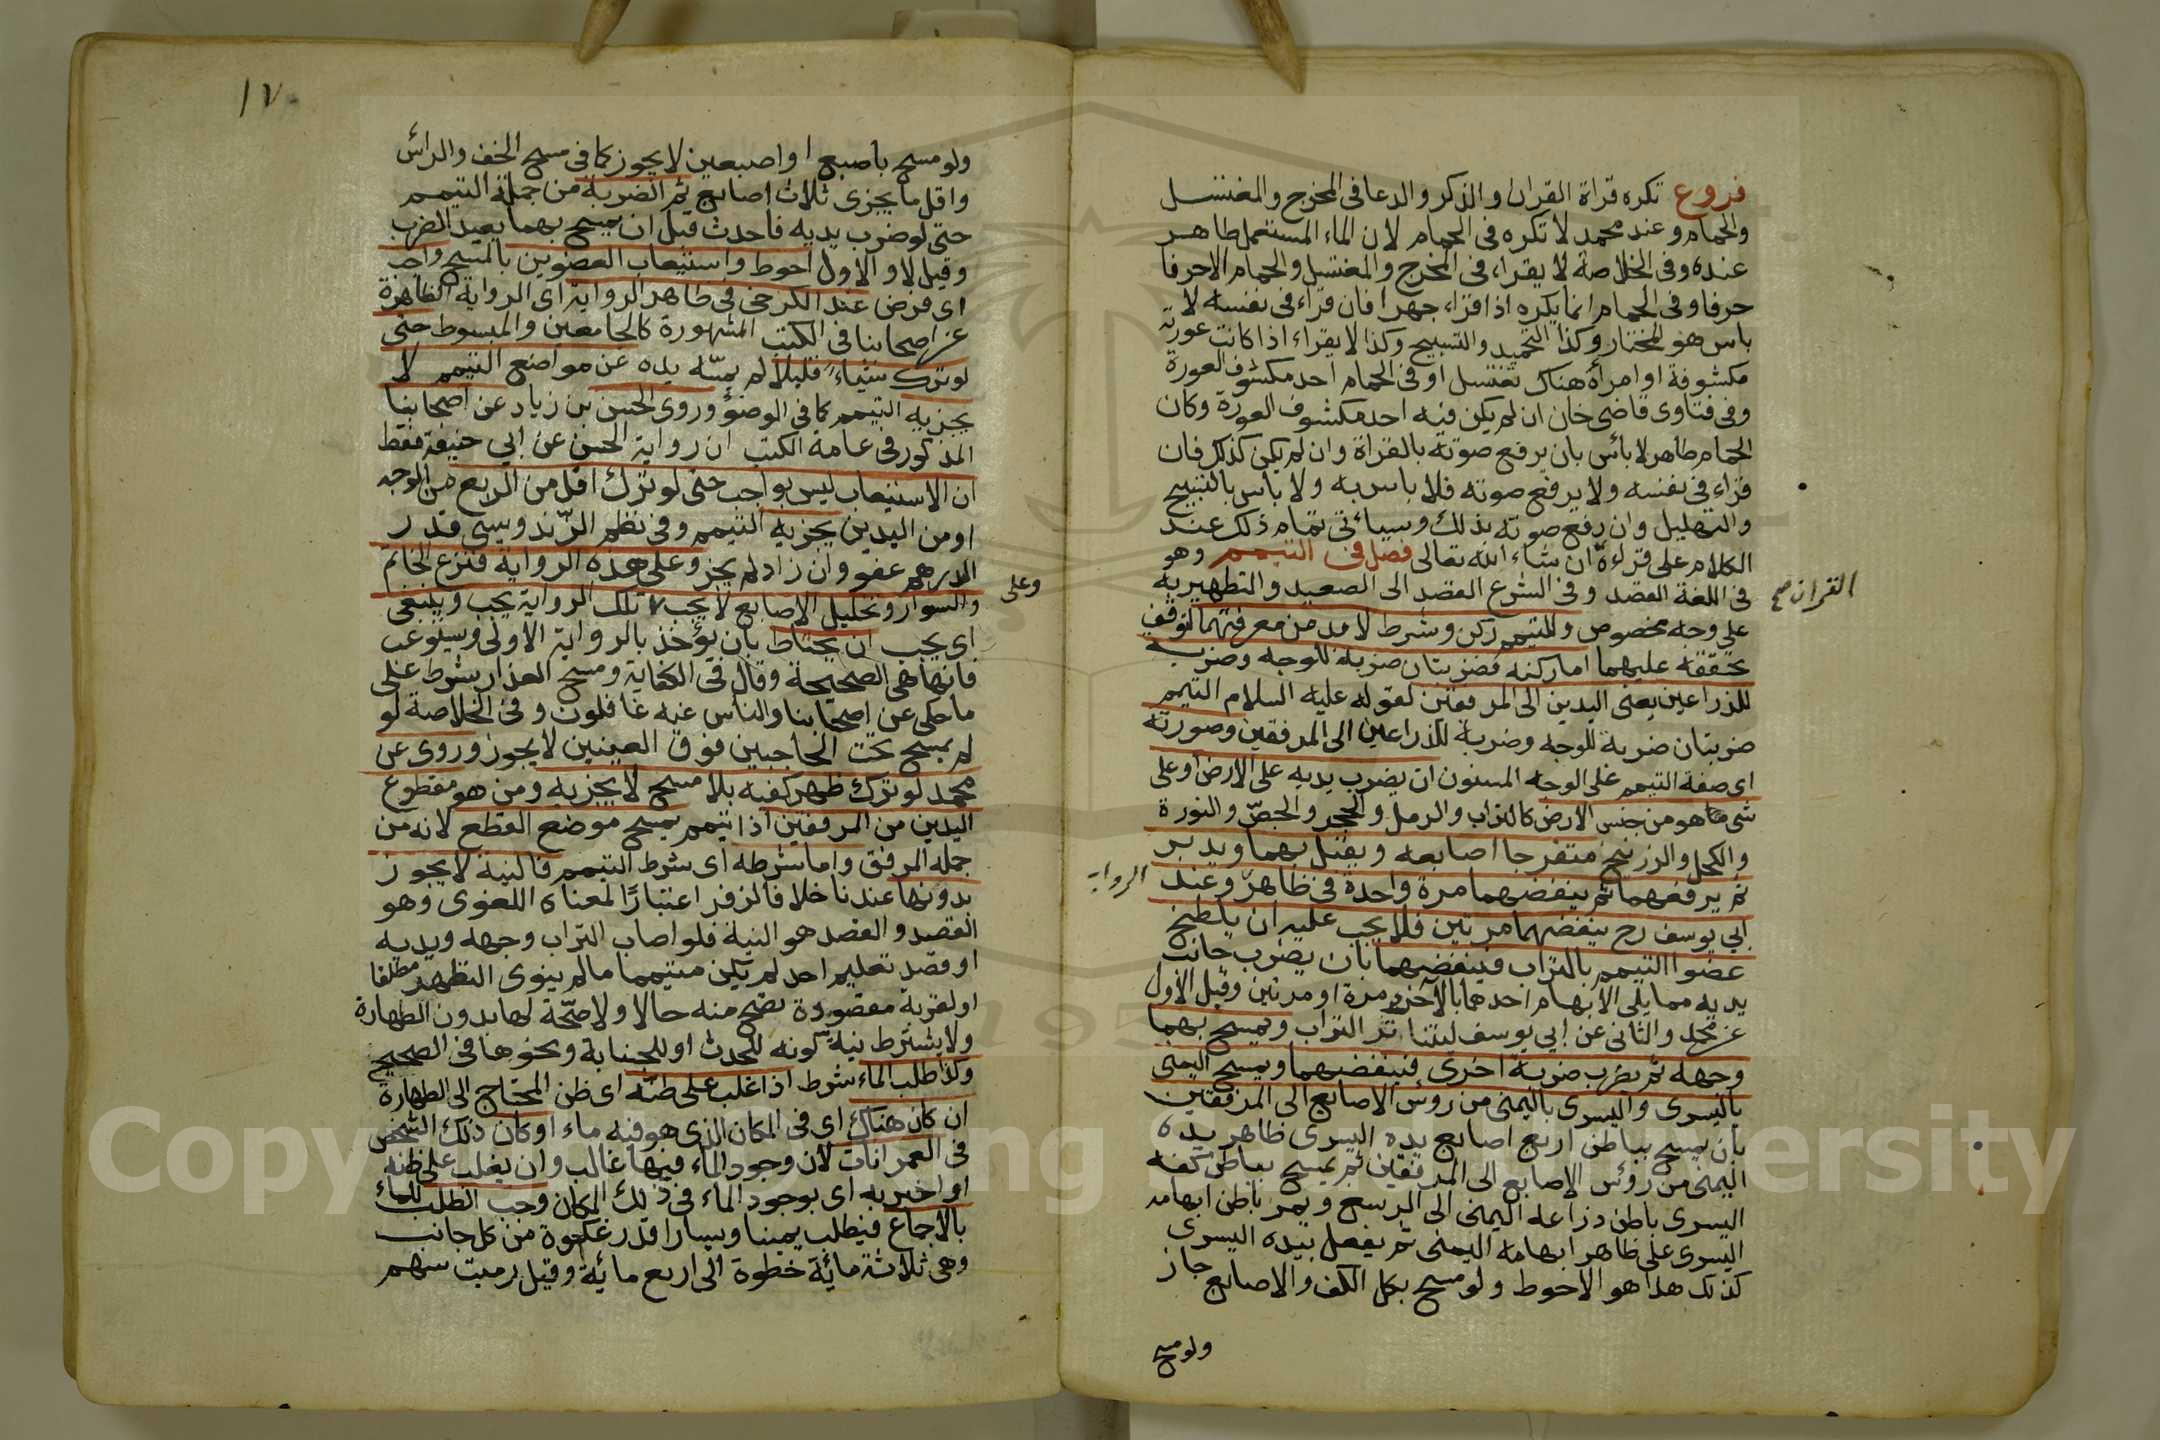 فروع تكره قراة القران والذكر والدعا في المخرج والمغتسل
والحمام وعند محمد لا تكره في الحمام لان الماء المستعمل طاهر
عنده وفي الخلاصة لا يقراء في المخرج والمغتسل والحمام الا حرفا
حرفا وفي الحمام انما يكره اذا قراء جهرا فان قراء في نفسه لا
باس هو المختار وكذا التحميد والتسبيح وكذا لا يقراء اذا كانت عورته
مكشوفة او امرأة هناك تغتسل او في الحمام احد مكشوف العورة
وفي فتاوى قاضي خان ان لم يكن فيه احد مكشوف العورة وكان
الحمام طاهر لا بأس بان يرفع صوته بالقراة وان لم يكن كذلك فان
قراء في نفسه ولا يرفع صوته فلا باس به ولا باس بالتسبيح
والتهليل وان رفع صوته بذلك وسيأتي تمام ذلك عند
الكلام على قراءة ان شاء الله تعالى فصل في التيمم وهو
القران صح
في اللغة القصد وفي الشرع القصد الى الصعيد والتطهير به
على وجه مخصوص وللتيمم ركن وشرط لا مد من معرفتهما لتوقف
تحققه عليهما اما ركنه فضربتان ضربة للوجه وضربة
للذراعين يعني اليدين الى المرفقين لقوله عليه السلام التيمم
ضربتان ضربة للوجه وضربة للذراعين الى المرفقين وصورته
اي صفة التيمم على الوجه المسنون ان يضرب يديه على الارض او على
شي مما هو من جنس الارض كالتراب والرمل والحجر والجص والنورة
والكحل والزرنيخ منفرجا اصابعه ويقبل بهما ويدبر
ثم يرفعهما ثم ينفضهما مرة واحدة في ظاهر وعند
الرواية
ابي يوسف رح ينفضهما مرتين فلا يجب عليه ان يلطخ
عضوا التيمم بالتراب فينفضهما بان يضرب جانب
يديه مما يلي الابهام احدهما بالآخر مرة او مرتين وقيل الاول
عن محمد والثاني عن ابي يوسف التراب ويمسح بهما
وجهه ثم يضرب ضربة اخرى فينفضهما ويمسح اليمنى
باليسرى واليسرى باليمنى من رؤس الاصابع الى المرفقين
بان يمسح بباطن اربع اصابع يده اليسرى ظاهر يده
اليمنى من رؤس الاصابع الى المرفقين ثم يمسح بباطن كفه
اليسرى باطن ذراعه اليمنى الى الرسغ ويمر باطن ابهامه
اليسرى على ظاهر ابهامه اليمنى ثم يفعل بيده اليسرى
كذلك هذا هو الاحوط ولو مسح بكل الكف والاصابع جاز
ولو مسح
١٧
ولو مسح باصبع او اصبعين لا يجوز كما في مسح الخف والرأس
واقل ما يجزى ثلاث اصابع ثم الضربة من جملة التيمم
حتى لو ضرب يديه فاحدث قبل ان يمسح بهما يعيد الضرب
وقيل لا والاول احوط واستيعاب العضوين بالمسح واجب
اي فرض عند الكرخي في ظاهر الرواية اي الرواية الظاهرة
عن اصحابنا في الكتب المشهورة كالجامعين والمبسوط حتى
لو ترك شيأ قليلا لم يمسه يده عن مواضع التيمم لا
يجزيه التيمم كما في الوضؤ وروى الحسن بن زياد عن اصحابنا
المذكور في عامة الكتب ان رواية الحسن عن ابي حنيفة فقط
ان الاستيعاب ليس بواجب حتى لو ترك اقل من الربع من الوجه
او من اليدين يجزيه التيمم وفي نظم الزندويسي قدر
الدرهم عفو وان زاد لم يجز وعلى هذه الرواية فنزع الخاتم
والسوار وتخليل الاصابع لا يجب تلك الرواية يجب وينبغي
وعلى
اي يجب ان يحتاط بان يؤخذ بالرواية الاولى ويستوعب
فانها هي الصحيحة وقال في الكفاية ومسح العذار شرط على
ما حكى عن اصحابنا والناس عنه غافلون وفي الخلاصة لو
لم يمسح تحت الحاجبين فوق العينين لا يجوز وروى عن
محمد لو ترك ظهر كفيه بلا مسح لا يجزيه ومن هو مقطوع
اليدين من المرفقين اذا تيمم يمسح موضع القطع لانه من
جملة المرفق واما شرطه اي شرط التيمم فالنية لا يجوز
بدونها عندنا خلافا لزفر اعتبارًا لمعناه اللغوى وهو
القصد والقصد هو النية فلو اصاب التراب وجهه ويديه
او قصد تعليم احد لم يكن متيمما ما لم ينوى التطهر مطلقا
او لقربة مقصودة تصح منه حالا ولا صحّة لها بدون الطهارة
ولا يشترط نية كونه للحدث او للجنابة ونحوها في الصحيح
وكذا طلب الماء شرط اذا غلب على ظنه اي ظن المحتاج الى الطهارة
ان كان هناك اي في المكان الذي هو فيه ماء او كان ذلك الشخص
في العمرانات لان وجود الماء فيها غالب وان يغلب على ظنه
او اخبر به اي بوجود الماء في ذلك المكان وجب الطلب للماء
بالاجماع فيطلب يمينا ويسارا قدر غلوة من كل جانب
وهي ثلاثة مائة خطوة الى اربع مائة وقيل رميت سهم